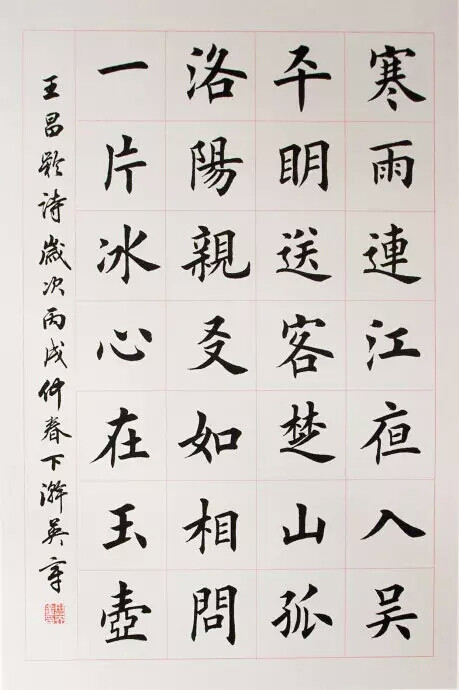 寒雨連江夜入吳
平明送客楚山孤
洛陽親友如相問
一片冰心在玉壺
王昌齡詩歲次丙戌仲春下澣英